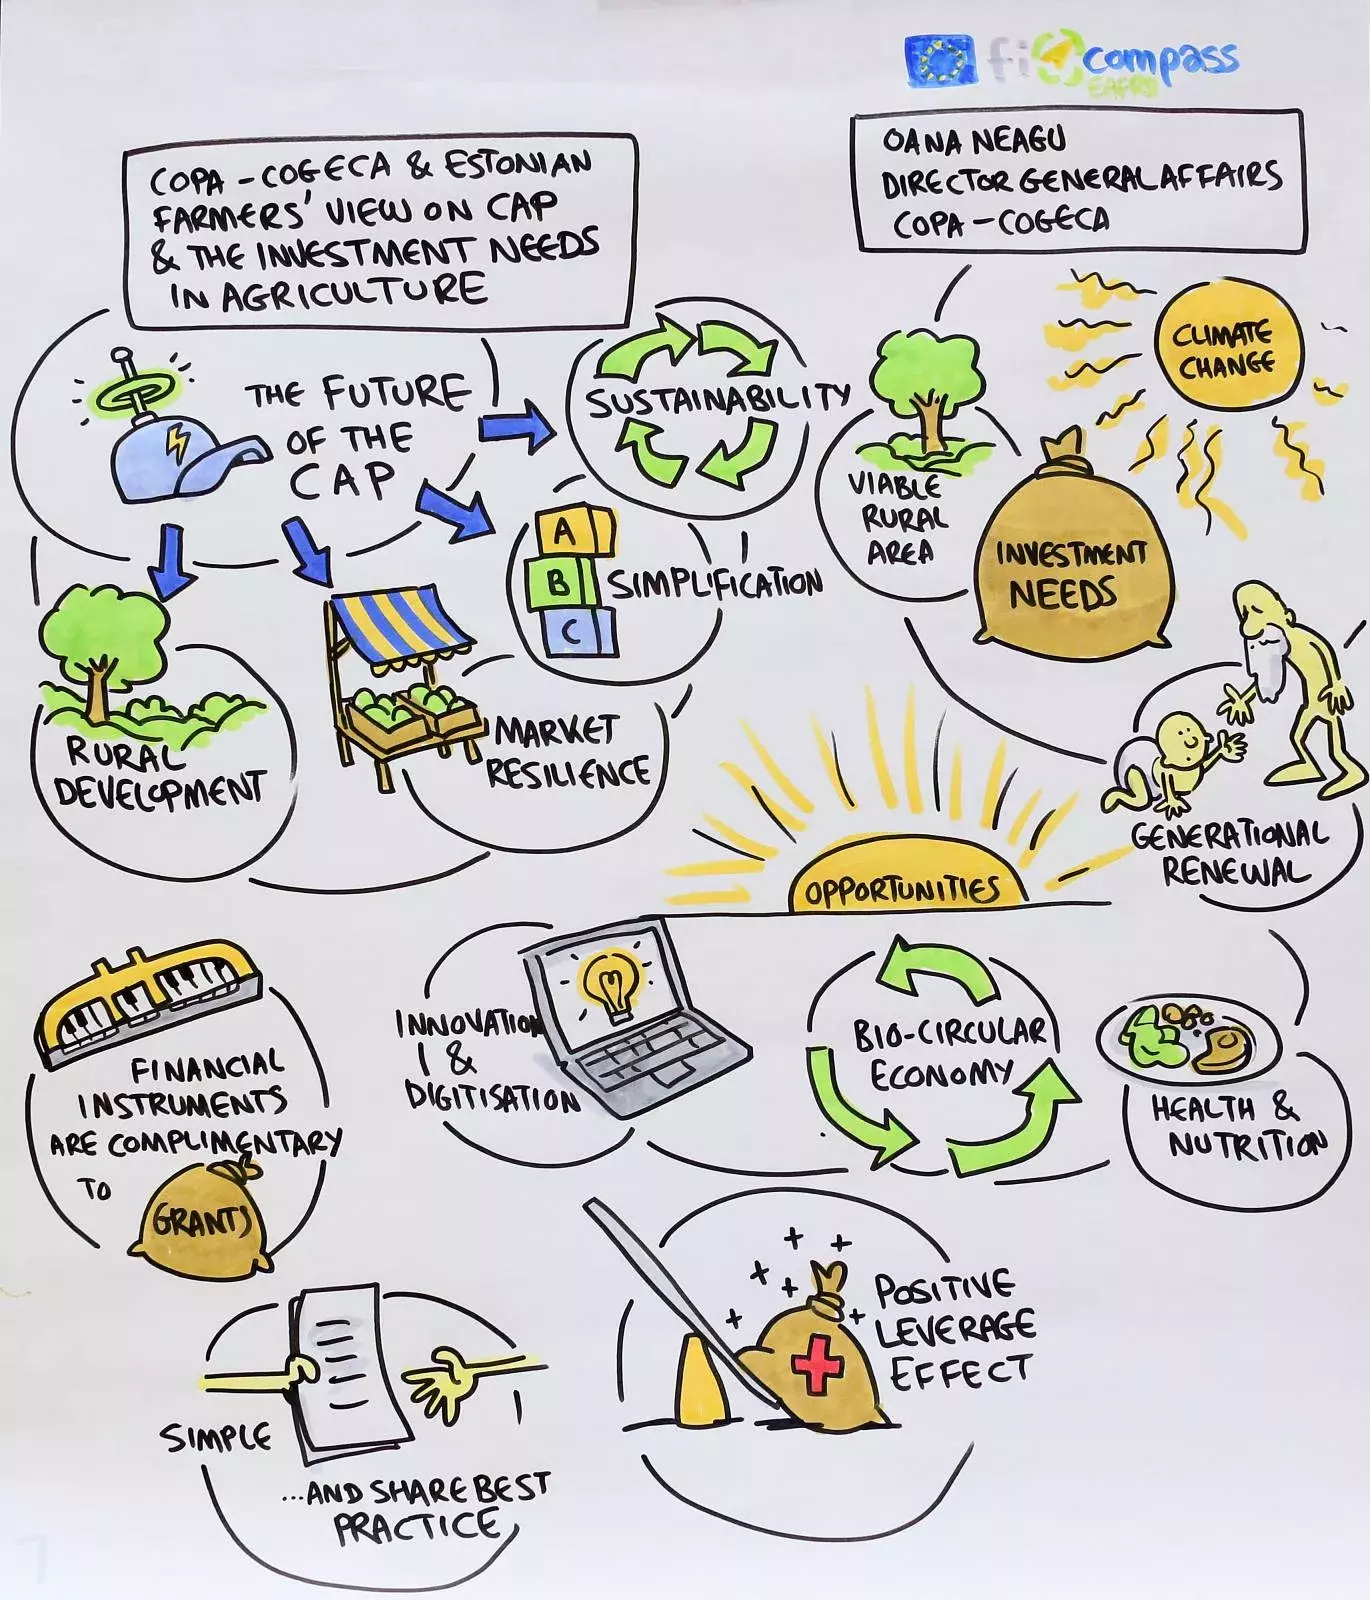 fi compass
EAFRD
COPA-COGECA & ESTONIAN
FARMERS' VIEW ON CAP
& THE INVESTMENT NEEDS
IN AGRICULTURE
OANA NEAGU
DIRECTOR GENERAL AFFAIRS
COPA-COGECA
THE FUTURE
OF THE
CAP
SUSTAINABILITY
A
B
C
SIMPLIFICATION
MARKET
RESILIENCE
RURAL
DEVELOPMENT
VIABLE
RURAL
AREA
CLIMATE
CHANGE
INVESTMENT
NEEDS
GENERATIONAL
RENEWAL
OPPORTUNITIES
INNOVATION
&
DIGITISATION
BIO-CIRCULAR
ECONOMY
HEALTH &
NUTRITION
FINANCIAL
INSTRUMENTS
ARE COMPLIMENTARY
TO
GRANTS
SIMPLE
...AND SHARE BEST
PRACTICE
POSITIVE
LEVERAGE
EFFECT
7